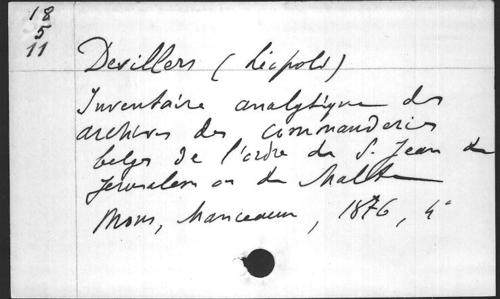 18
5
11
Devillers (Léopold)
Inventaire analytique des
archives des commanderies
belges de l'ordre de S. Jean de
Jérusalem ou de Malte
Mons, Manceaux, 1876, 4°